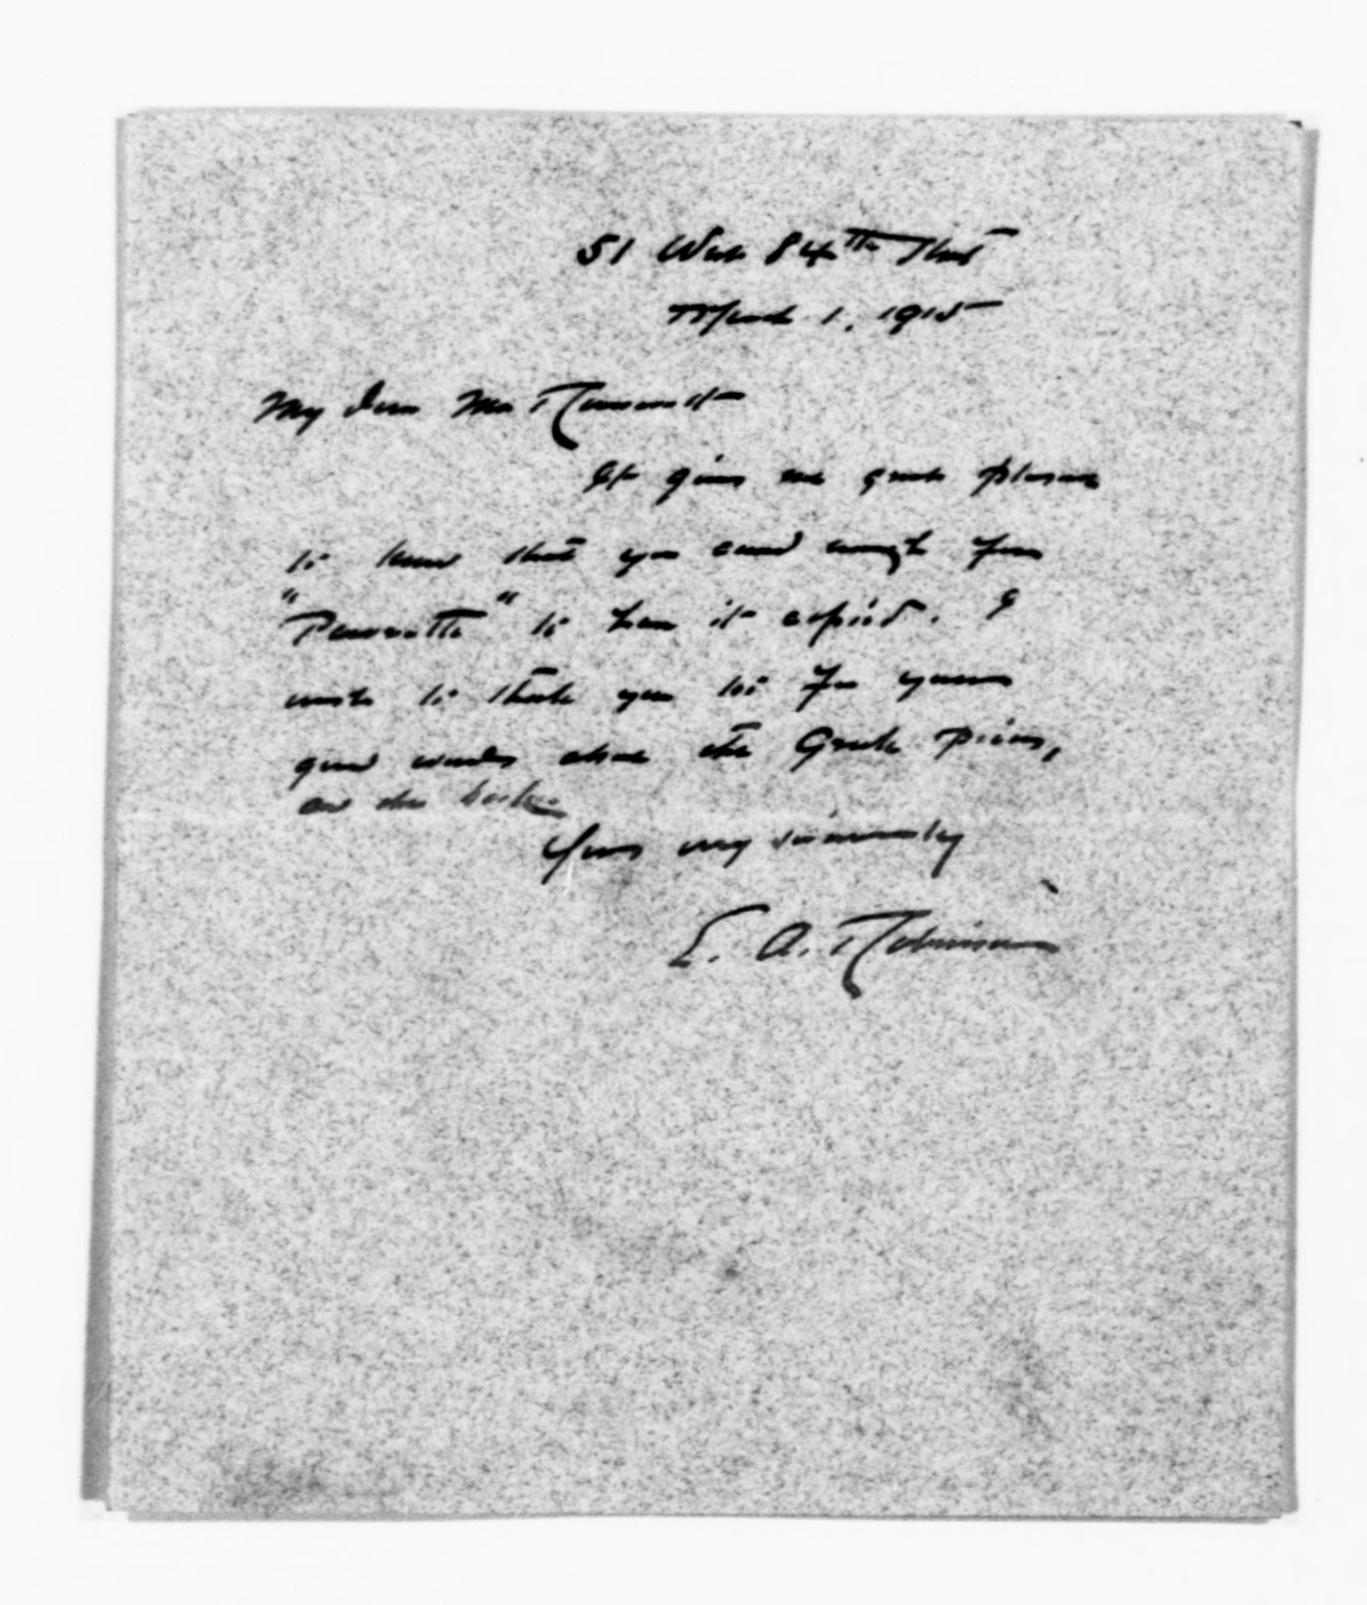 51 West 84th Street
March 1, 1915
My dear Mr Roosevelt
It gives me great pleasure
to know that you cared enough for
" " to have it copied. I
wish to thank you too for your
good words about the Greek pieces,
and the book.
Yours very sincerely
E. A. Robinson